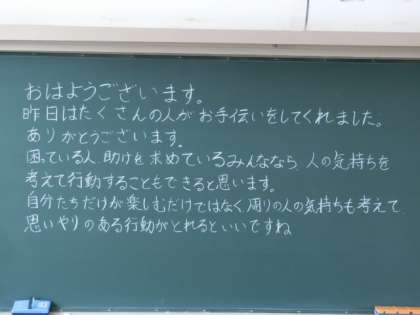 おはようございます。
昨日はたくさんの人がお手伝いをしてくれました。
ありがとうございます。
困っている人、助けを求めているみんななら、人の気持ちを
考えて行動することもできると思います。
自分たちだけが楽しむだけではなく、周りの人の気持ちも考えて、
思いやりのある行動がとれるといいですね